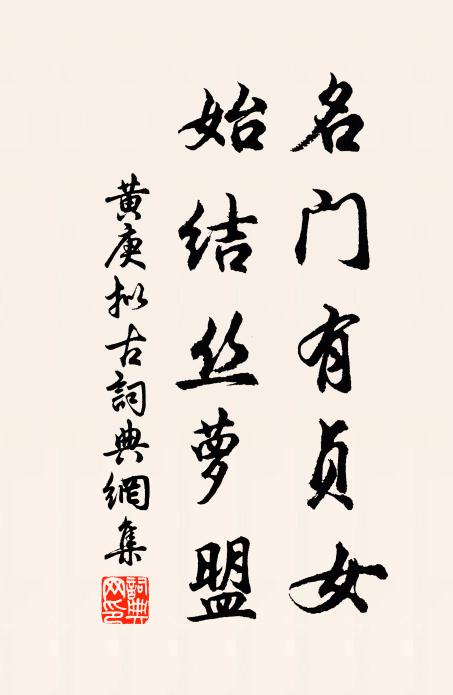 名门有贞女
始结丝萝盟
黄庚拟古詞典網集
詞典网印